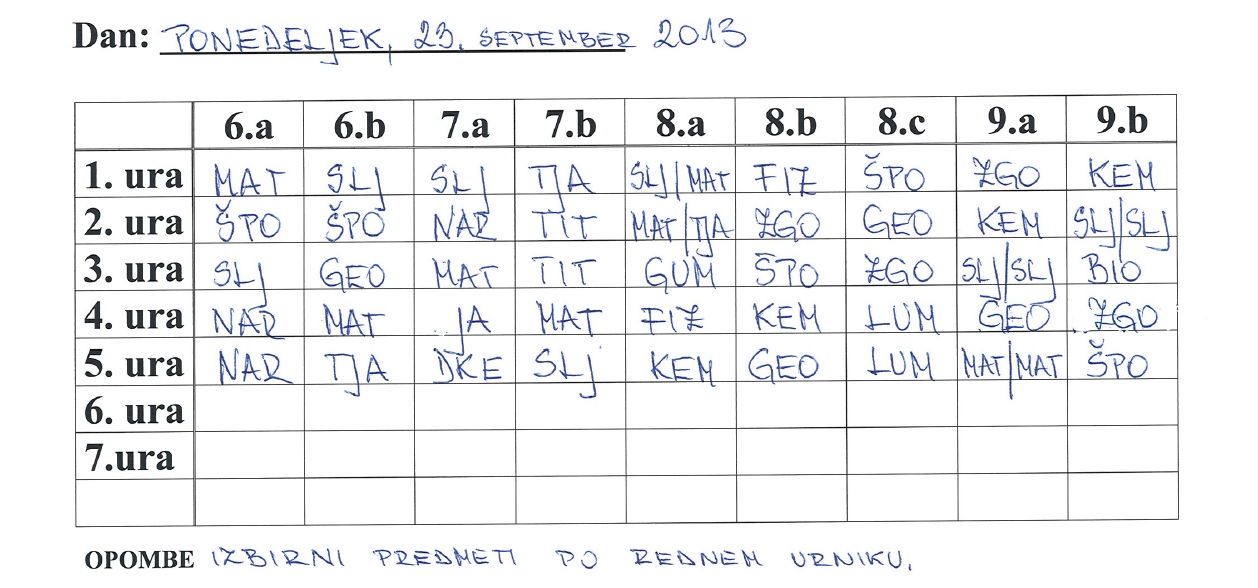 Dan: PONEDELJEK, 23. SEPTEMBER 2013
6.a 6.b 7.a 7.b 8.a 8.b 8.c 9.a 9.b
1. ura MAT SLJ SLJ TJA SLJ/MAT FIZ ŠPO ZGO KEM
2. ura ŠPO ŠPO NAR TIT MAT/TJA ZGO GEO KEM SLJ/SLJ
3. ura SLJ GEO MAT TIT GUM ŠPO ZGO SLJ/SLJ BIO
4. ura NAR MAT JA MAT FIZ KEM LUM GEO ZGO
5. ura NAR TJA DKE SLJ KEM GEO LUM MAT/MAT ŠPO
6. ura
7.ura
OPOMBE IZBIRNI PREDMETI PO REDNEM URNIKU.